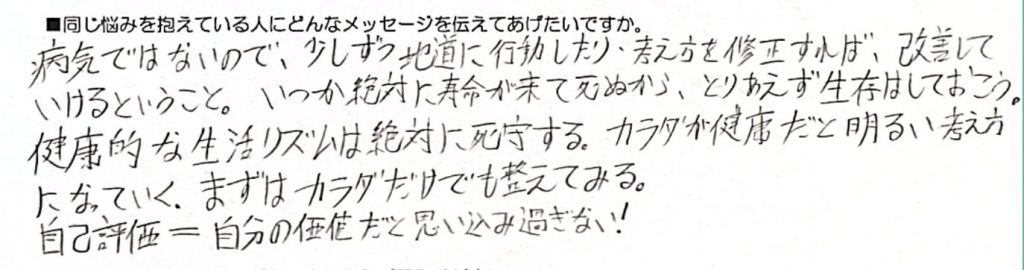 ■同じ悩みを抱えている人にどんなメッセージを伝えてあげたいですか。
病気ではないので、少しずつ地道に行動したり・考え方を修正すれば、改善して
いけるということ。いつか絶対に寿命が来て死ぬから、とりあえず生存はしておこう。
健康的な生活リズムは絶対に死守する。カラダが健康だと明るい考え方
になっていく。まずはカラダだけでも整えてみる。
自己評価＝自分の価値だと思い込み過ぎない!